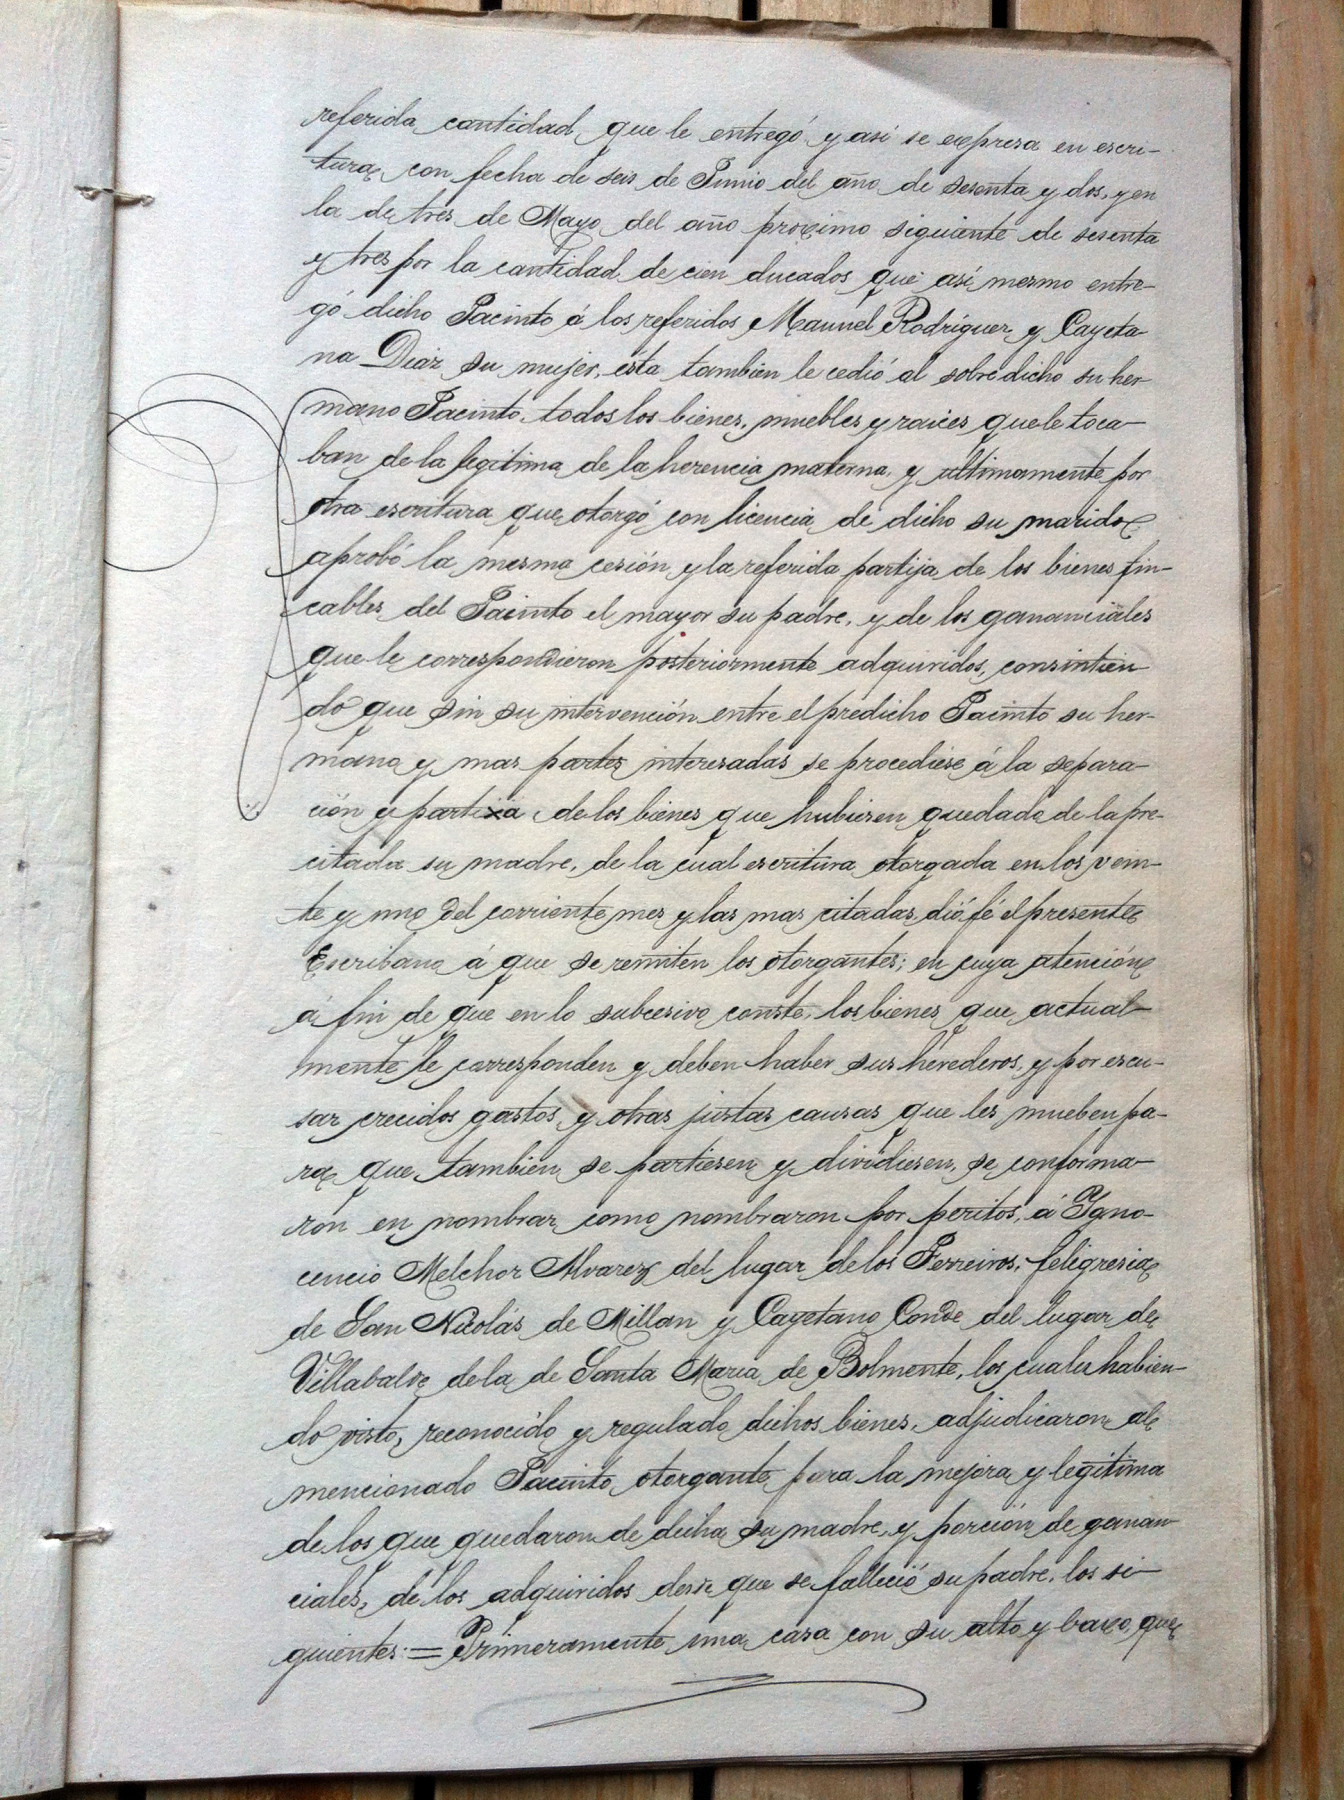 referida cantidad que le entregó y asi se expresa en escri-
tura, con fecha de seis de Junio del año de sesenta y dos, y en
la de tres de Mayo del año proximo siguiente de sesenta
y tres por la cantidad de cien ducados que así mesmo entre-
gó dicho Jacinto á los referidos Manuel Rodríguez y Cayeta-
na Diaz su mujer, esta tambien le cedió al sobre dicho su her-
mano Jacinto, todos los bienes, muebles y raices que le toca-
ban de la legitima de la herencia materna, y ultimamente por
otra escritura que otorgó con licencia de dicho su marido
aprobó la mesma cesión y la referida partija de los bienes fin-
cables del Jacinto el mayor su padre, y de los gananciales
que le correspondieron posteriormente adquiridos, consintien-
do que sin su intervención entre el predicho Jacinto su her-
mano y mas partes interesadas se procediese á la separa-
ción y partixa de los bienes que hubiesen quedado de la pre-
citada su madre, de la cual escritura otorgada en los vein-
te y uno del corriente mes y las mas citadas dió fé el presente
Escribano á que se remiten los otorgantes; en cuya atención
á fin de que en lo subcesivo conste, los bienes que actual-
mente le corresponden y deben haber sus herederos, y por escu-
sar crecidos gastos y otras justas causas que les mueben pa-
ra que tambien se partiesen y dividiesen, se conforma-
ron en nombrar como nombraron por peritos, á Yano-
cencio Melchor Alvarez del lugar de los Ferreiros, feligresia
de San Nicolás de Millan y Cayetano Conde del lugar de
Villabalve de la de Santa Maria de Bolmente, los cuales habien-
do visto, reconocido y regulado dichos bienes, adjudicaron al
mencionado Jacinto otorgante para la mejora y legitima
de los que quedaron de dicha su madre, y porción de ganan-
ciales, de los adquiridos desde que se falleció su padre, los si-
guientes: = Primeramente una casa con su alto y baxo que